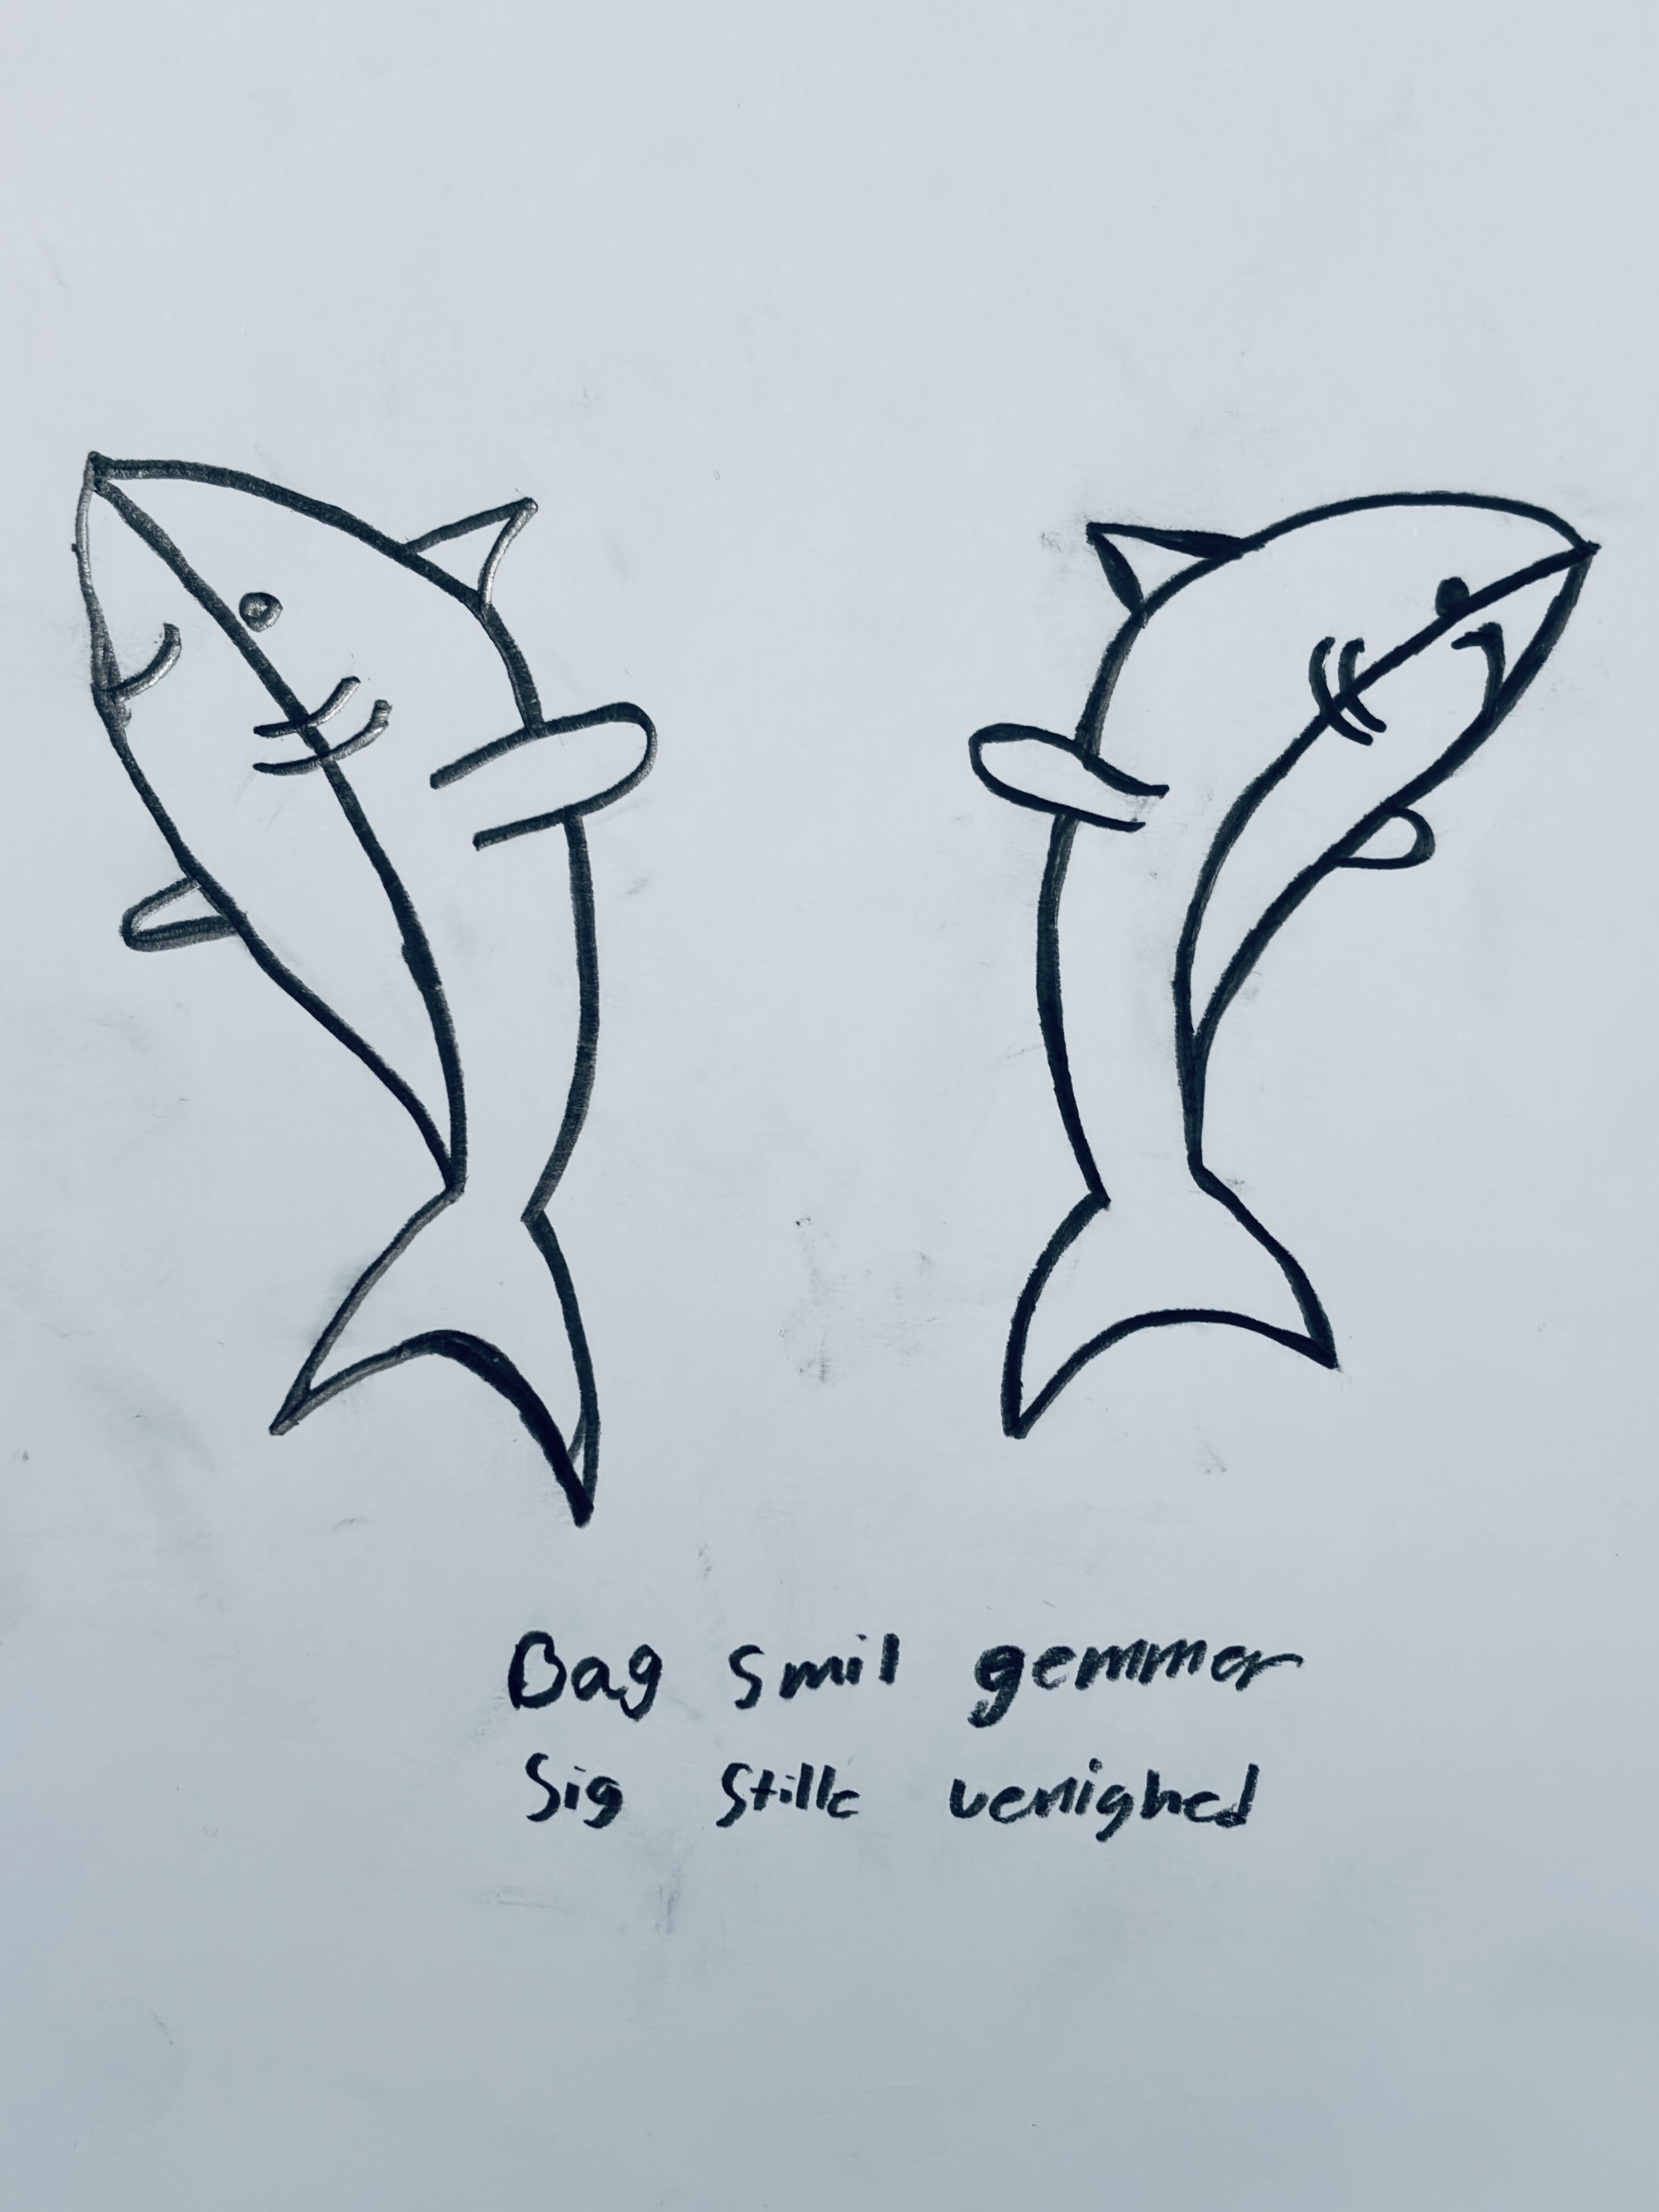 Bag smil gemmer
Sig stille venighed